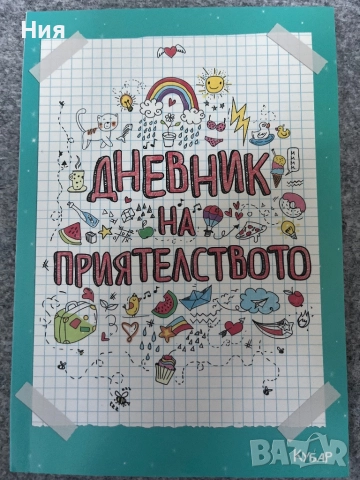 Ния
ДНЕВНИК
НА
ПРИЯТЕЛСТВОТО
КУБАР
bazar.bg